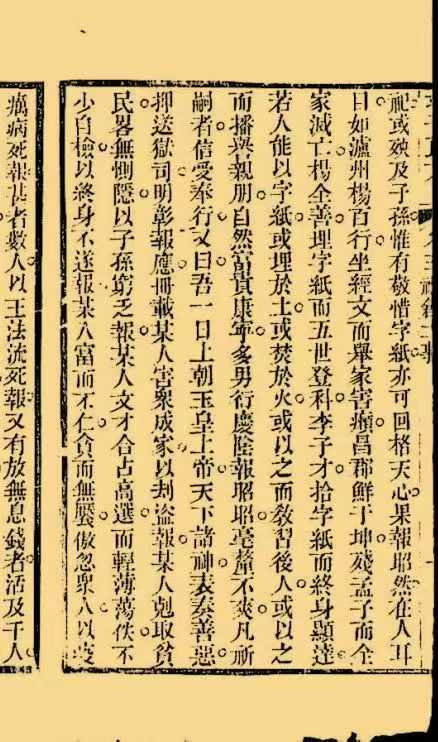 祀或殃及子孫惟有敬惜字紙亦可回格天心果報昭然在人耳
目如瀘州楊百行坐經文而舉家害癩昌郡鮮于坤殘孟子而全
家滅亡楊全善埋字紙而五世登科李子才拾字紙而終身顯達
若人能以字紙或埋於土或焚於火或以之而教習後人或以之
而播與親朋自然富貴康寧多男衍慶陰報昭昭毫釐不爽凡祈
嗣者信受奉行又曰吾一日上朝玉皇上帝天下諸神表奏善惡
抑送獄司明彰報應冊載某人害衆成家以刦盜報某人剋取貧
民畧無惻隱以子孫窮乏報某人文才合占高選而輕薄蕩佚不
少自檢以終身不遂報某入富而不仁貪而無饜傲忽衆人以疫
癘病死報甚者數人以王法流死報又有放無息錢者活及千人